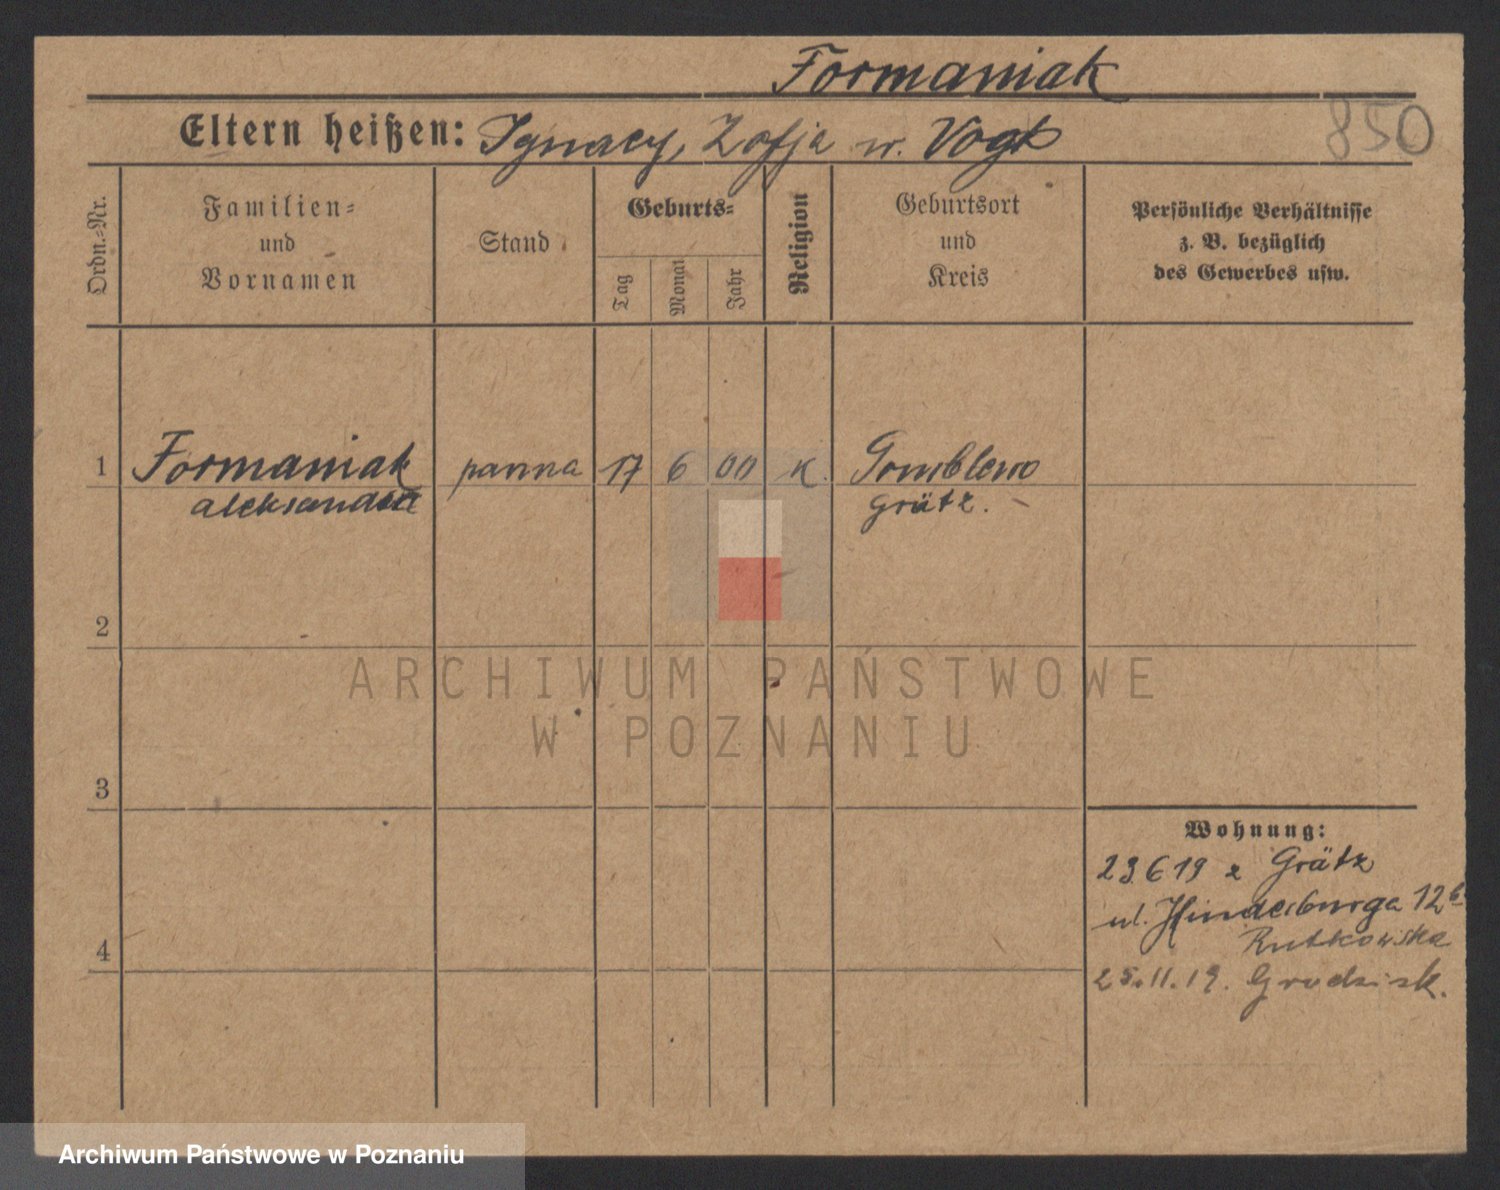 Formaniak
850
Eltern heißen: Ignacy, Zofja w. Vogt
Ordn.-Nr.
Familien- und Vornamen
Stand
Geburts-
Tag
Monat
Jahr
Religion
Geburtsort und Kreis
Persönliche Verhältnisse
z. B. bezüglich
des Gewerbes usw.
1 Formaniak panna 17 6 00 K. Gomblewo
Aleksandra Grätz.
2
3
4
ARCHIWUM PAŃSTWOWE
W POZNANIU
Wohnung:
23 6 19 z Grätz
ul. Hindenburga 12
Rutkowska
25.11.19. Grodzisk.
Archiwum Państwowe w Poznaniu